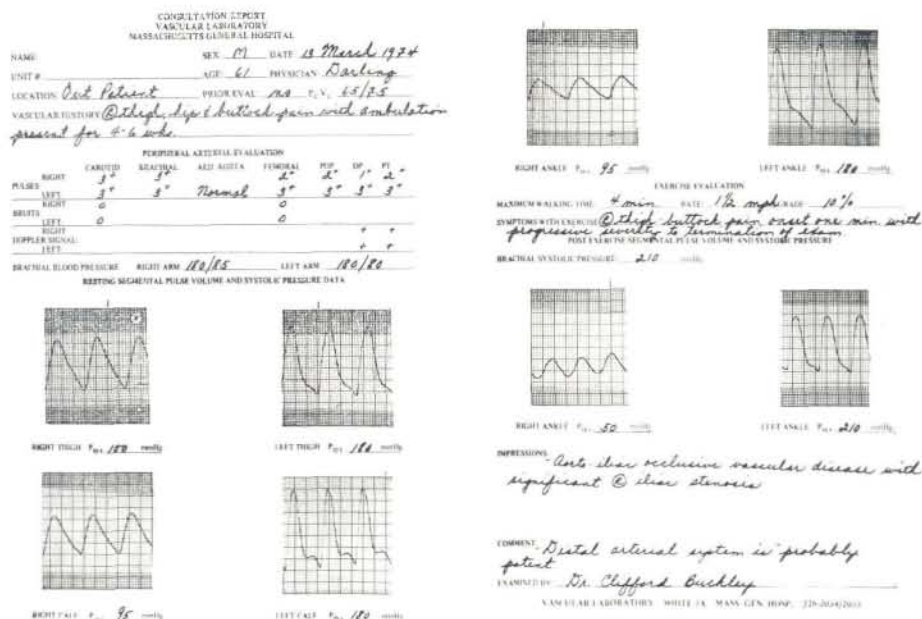 CONSULTATION REPORT
VASCULAR LABORATORY
MASSACHUSETTS GENERAL HOSPITAL
NAME SEX M DATE 13 March 1974
UNIT # AGE 61 PHYSICIAN Darling
LOCATION Out Patient PRIOR EVAL no 65/75
VASCULAR HISTORY Ⓡ thigh, hip & buttock pain with ambulation
present for 4-6 wks.
PERIPHERAL ARTERIAL EVALUATION
CAROTID BRACHIAL ABD AORTA FEMORAL POP DP PT
RIGHT 3+ 3+ 2+ 2+ 1+ 2+
PULSES
LEFT 3+ 3+ Normal 3+ 3+ 3+ 3+
RIGHT 0 0
BRUITS
LEFT 0 0
RIGHT + +
DOPPLER SIGNAL:
LEFT + +
BRACHIAL BLOOD PRESSURE RIGHT ARM 180/85 LEFT ARM 180/80
RESTING SEGMENTAL PULSE VOLUME AND SYSTOLIC PRESSURE DATA
RIGHT THIGH mmHg LEFT THIGH 180 mmHg
RIGHT CALF 95 mmHg LEFT CALF 180 mmHg
RIGHT ANKLE 95 mmHg LEFT ANKLE 180 mmHg
EXERCISE EVALUATION
MAXIMUM WALKING TIME 4 min RATE 1½ mph GRADE 10%
SYMPTOMS WITH EXERCISE Ⓡ thigh-buttock pain onset one min. with
progressive severity to termination of exam.
POST EXERCISE SEGMENTAL PULSE VOLUME AND SYSTOLIC PRESSURE
BRACHIAL SYSTOLIC PRESSURE 210 mmHg
RIGHT ANKLE 50 mmHg LEFT ANKLE 210 mmHg
IMPRESSIONS - Aorto-iliac occlusive vascular disease with
significant Ⓡ iliac stenosis
COMMENT - Distal arterial system is probably
patent
EXAMINED BY Dr. Clifford Buckley
VASCULAR LABORATORY WHITE MASS GEN HOSP.